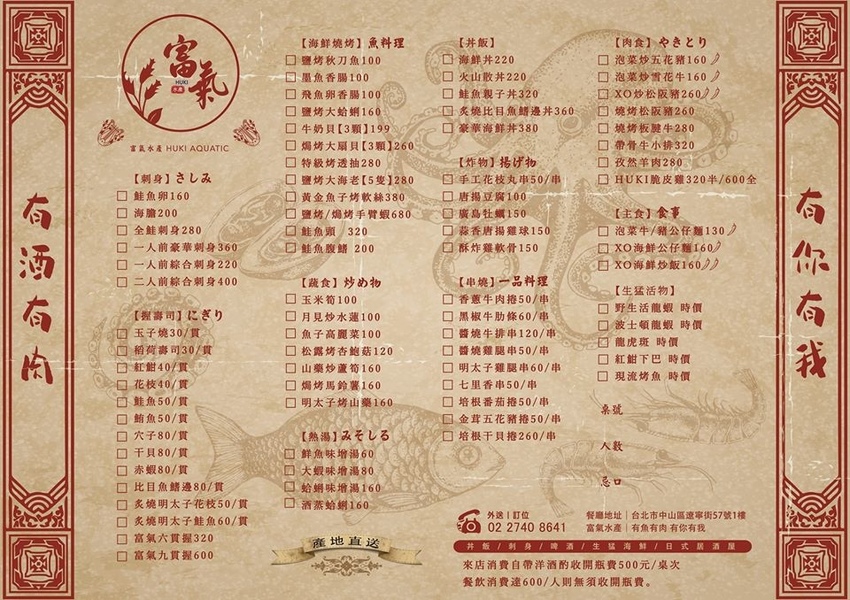 富氣
HUKI
水產
富氣水產 HUKI AQUATIC
【刺身】さしみ
鮭魚卵160
海膽200
全鮭刺身280
一人前豪華刺身360
一人前綜合刺身220
二人前綜合刺身400
【握壽司】にぎり
玉子燒30/貫
稻荷壽司30/貫
紅魽40/貫
花枝40/貫
鮭魚50/貫
鮪魚50/貫
穴子80/貫
干貝80/貫
赤蝦80/貫
比目魚鰭邊80/貫
炙燒明太子花枝50/貫
炙燒明太子鮭魚60/貫
富氣六貫握320
富氣九貫握600
【海鮮燒烤】魚料理
鹽烤秋刀魚100
墨魚香腸100
飛魚卵香腸100
鹽烤大蛤蜊160
牛奶貝【3顆】199
焗烤大扇貝【3顆】260
特級烤透抽280
鹽烤大海老【5隻】280
黃金魚子烤軟絲380
鹽烤/焗烤手臂蝦680
鮭魚頭 320
鮭魚腹鰭 200
【蔬食】炒め物
玉米筍100
月見炒水蓮100
魚子高麗菜100
松露烤杏鮑菇120
山藥炒蘆筍160
焗烤馬鈴薯160
明太子烤山藥160
【熱湯】みそしる
鮮魚味增湯60
大蝦味增湯80
蛤蜊味增湯160
酒蒸蛤蜊160
產地直送
【丼飯】
海鮮丼220
火山散丼220
鮭魚親子丼320
炙燒比目魚鰭邊丼360
豪華海鮮丼380
【炸物】揚げ物
手工花枝丸串50/串
唐揚豆腐100
廣島牡蠣150
蒜香唐揚雞球150
酥炸雞軟骨150
【串燒】一品料理
香蔥牛肉捲50/串
黑椒牛肋條60/串
醬燒牛排串120/串
醬燒雞腿串50/串
明太子雞腿串60/串
七里香串50/串
培根番茄捲50/串
金茸五花豬捲50/串
培根干貝捲260/串
【肉食】やきとり
泡菜炒五花豬160
泡菜炒雪花牛160
XO炒松阪豬260
燒烤松阪豬260
燒烤板腱牛280
帶骨牛小排320
孜然羊肉280
HUKI脆皮雞320半/600全
【主食】食事
泡菜牛/豬公仔麵130
XO海鮮公仔麵160
XO海鮮炒飯160
【生猛活物】
野生活龍蝦 時價
波士頓龍蝦 時價
龍虎斑 時價
紅魽下巴 時價
現流烤魚 時價
桌號
人數
忌口
外送|訂位
02 2740 8641
餐廳地址|台北市中山區遼寧街57號1樓
富氣水產|有魚有肉 有你有我
丼飯/刺身/啤酒/生猛海鮮/日式居酒屋
來店消費自帶洋酒酌收開瓶費500元/桌次
餐飲消費達600/人則無須收開瓶費。
有酒有肉
有你有我